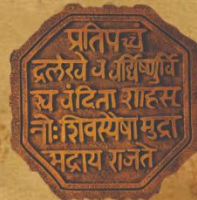 प्रतिपच्चं
द्रलेखेव वर्धिष्णुर्वि
श्व वंदिता शाहसू
नोः शिवस्यैषा मुद्रा
भद्राय राजते